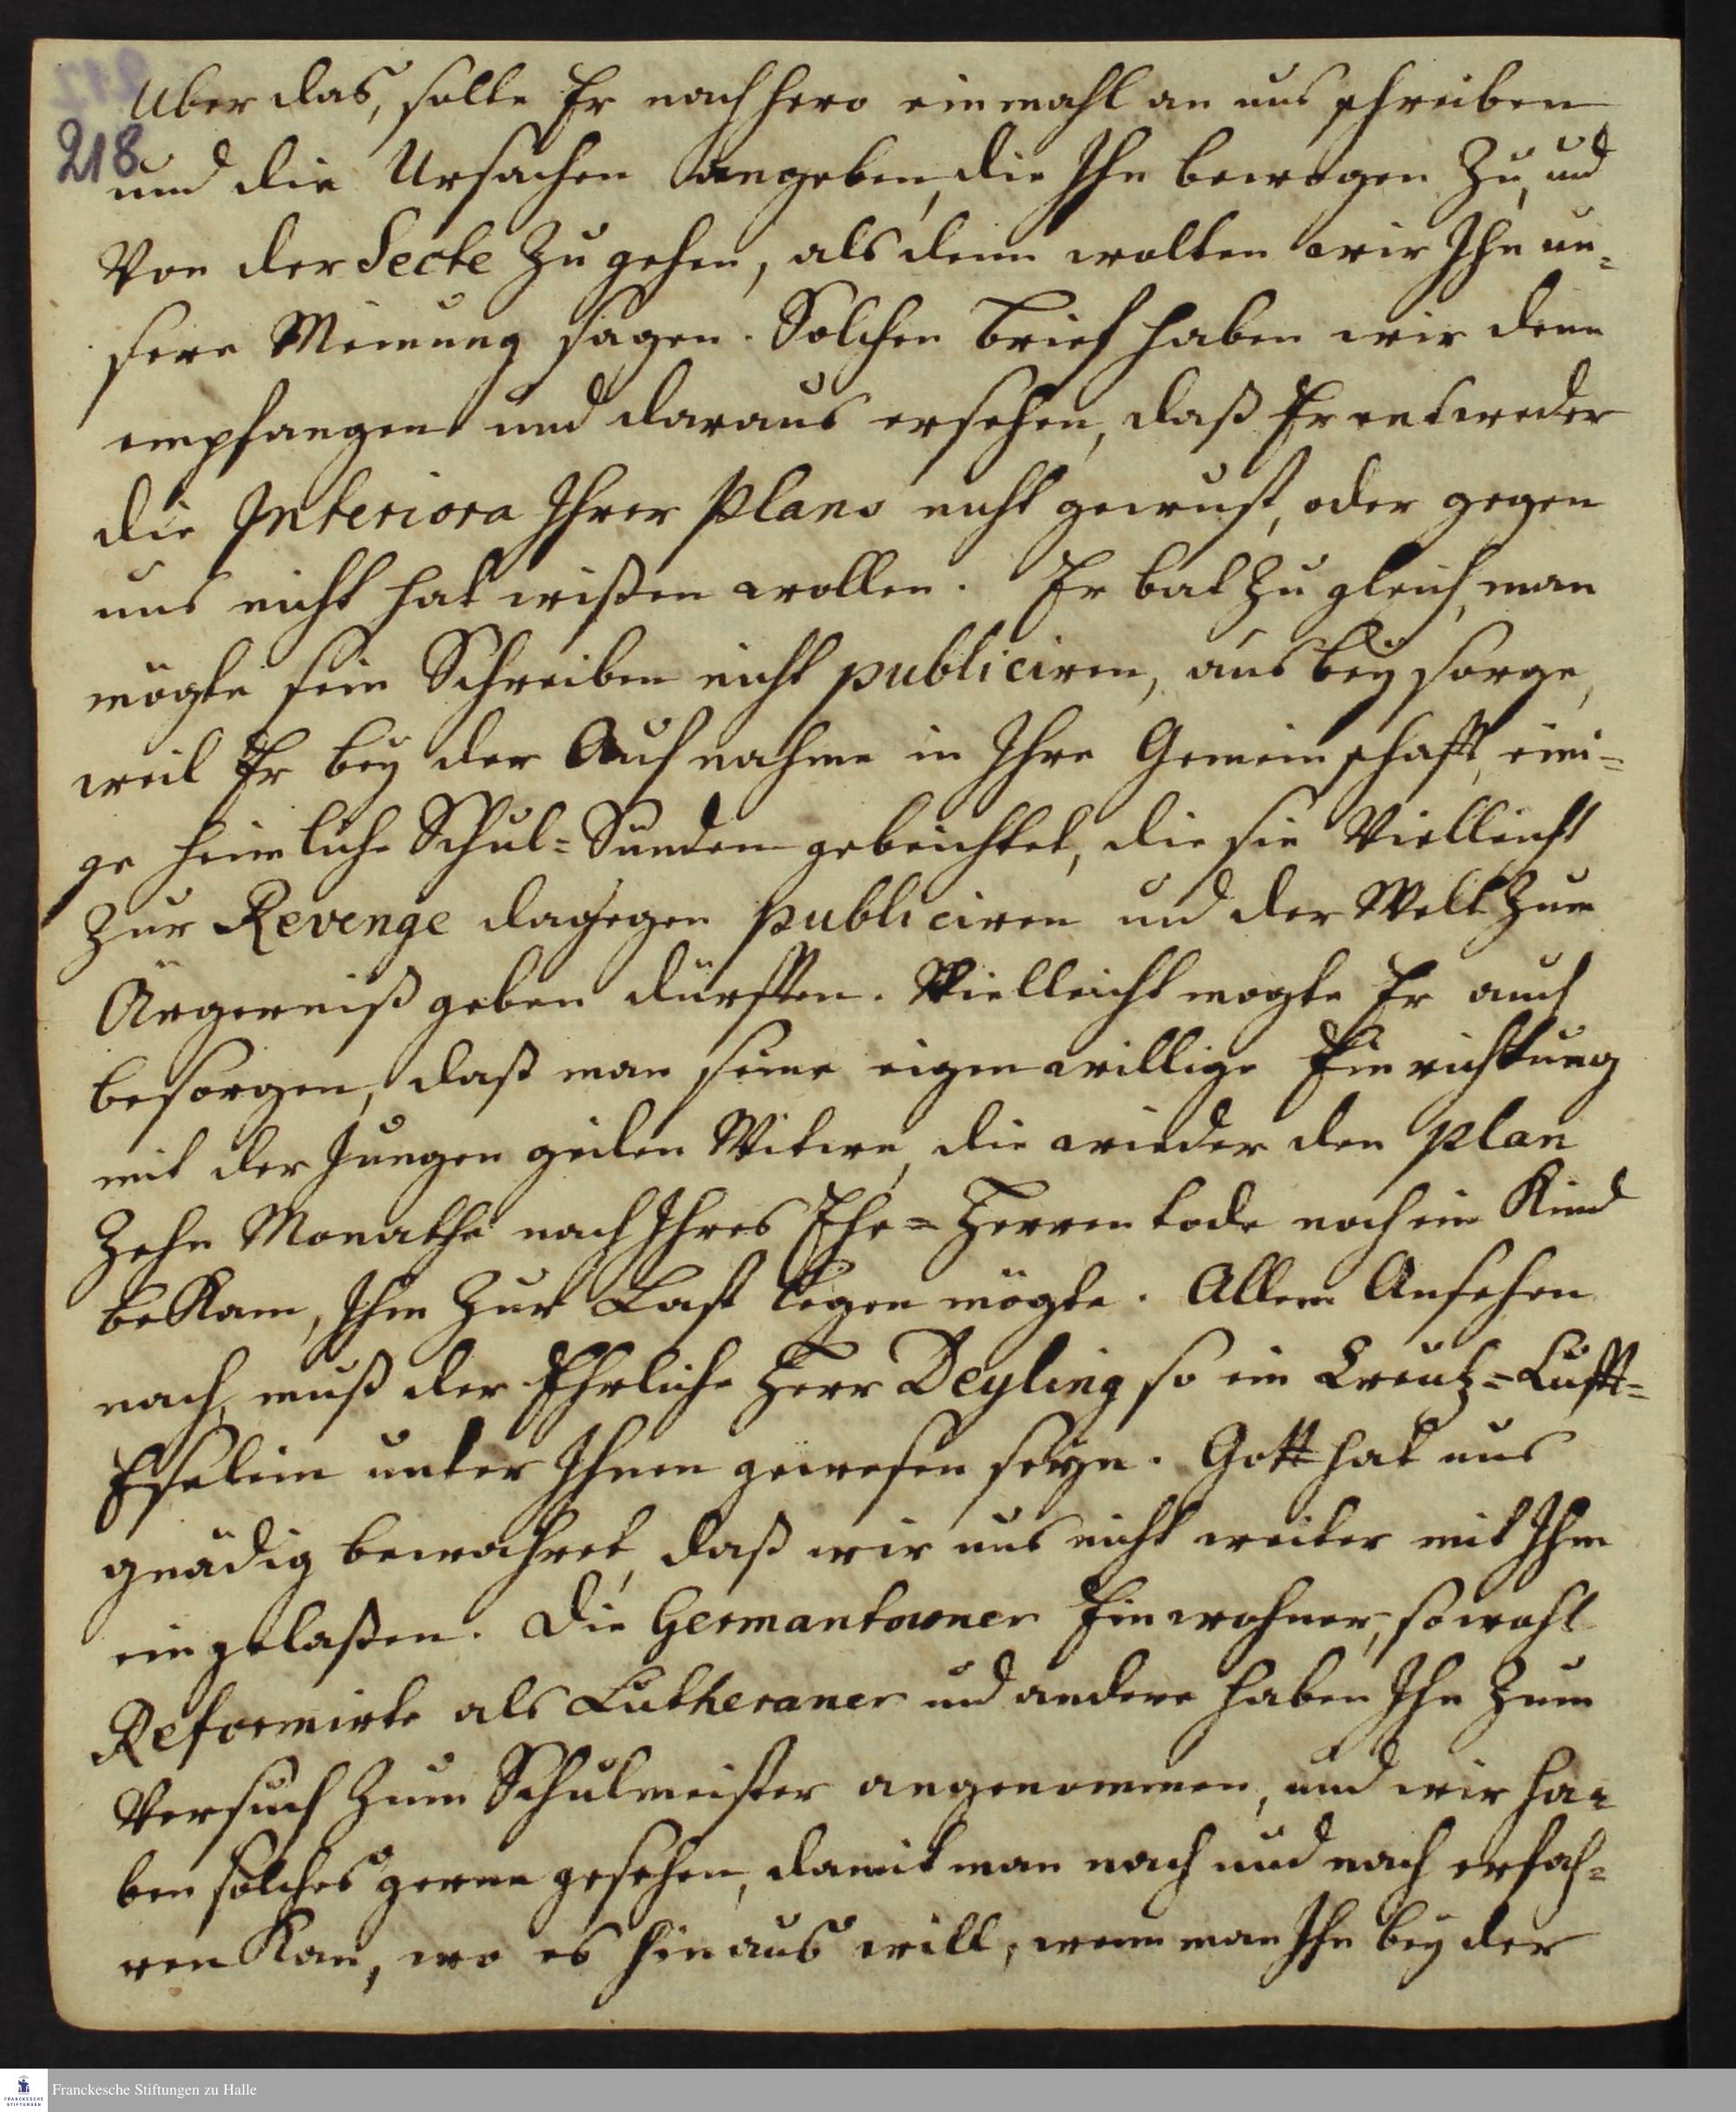 218
Uber das, solte Er nach hero einmahl an uns schreiben
und die Ursachen angeben, die Ihn bewogen zu, und
Von der Secte zu gehen, als denn wolten wir Ihn un=
sere Meinung sagen. Solchen brief haben wir denn
empfangen und daraus ersehen, daß Er entweder
die Interiora Ihrer Plans nicht gewust, oder gegen
uns nicht hat wißen wollen. Er bat zu gleich, man
mögte sein Schreiben nicht publiciren, aus beysorge,
weil Er bey der Aufnahme in Ihre Gemeinschafft, eini=
ge heimliche Schul=Sünden gebeichtet, die sie Vielleicht
zur Revenge dagegen publiciren und der Welt zum
Ärgerniß geben dürfften. Vielleicht mogte Er auch
besorgen, daß man seine eigenwillige Einrichtung
mit der Jungen geilen Witwe, die wieder den plan
Zehn Monathe nach Ihres Ehe=Herren tode noch ein Kind
beKam, Ihm zur Last legen mögte. Allem Ansehen
nach, muß der Ehrliche Herr Deyling so ein Creutz=Lufft=
Eselein unter Ihnen gewesen seyn. Gott hat uns
gnädig bewahret, daß wir uns nicht weiter mit Ihm
eingelaßen. Die Germantowner Einwohner, so wohl
Reformirte als Lutheraner und andere haben Ihn zum
Versuch zum Schulmeister angenommen, und wir ha=
ben solches gerne gesehen, damit man nach und nach erfah=
ren Kan, wo es hinaus will, wenn man Ihn bey der
Franckesche Stiftungen zu Halle